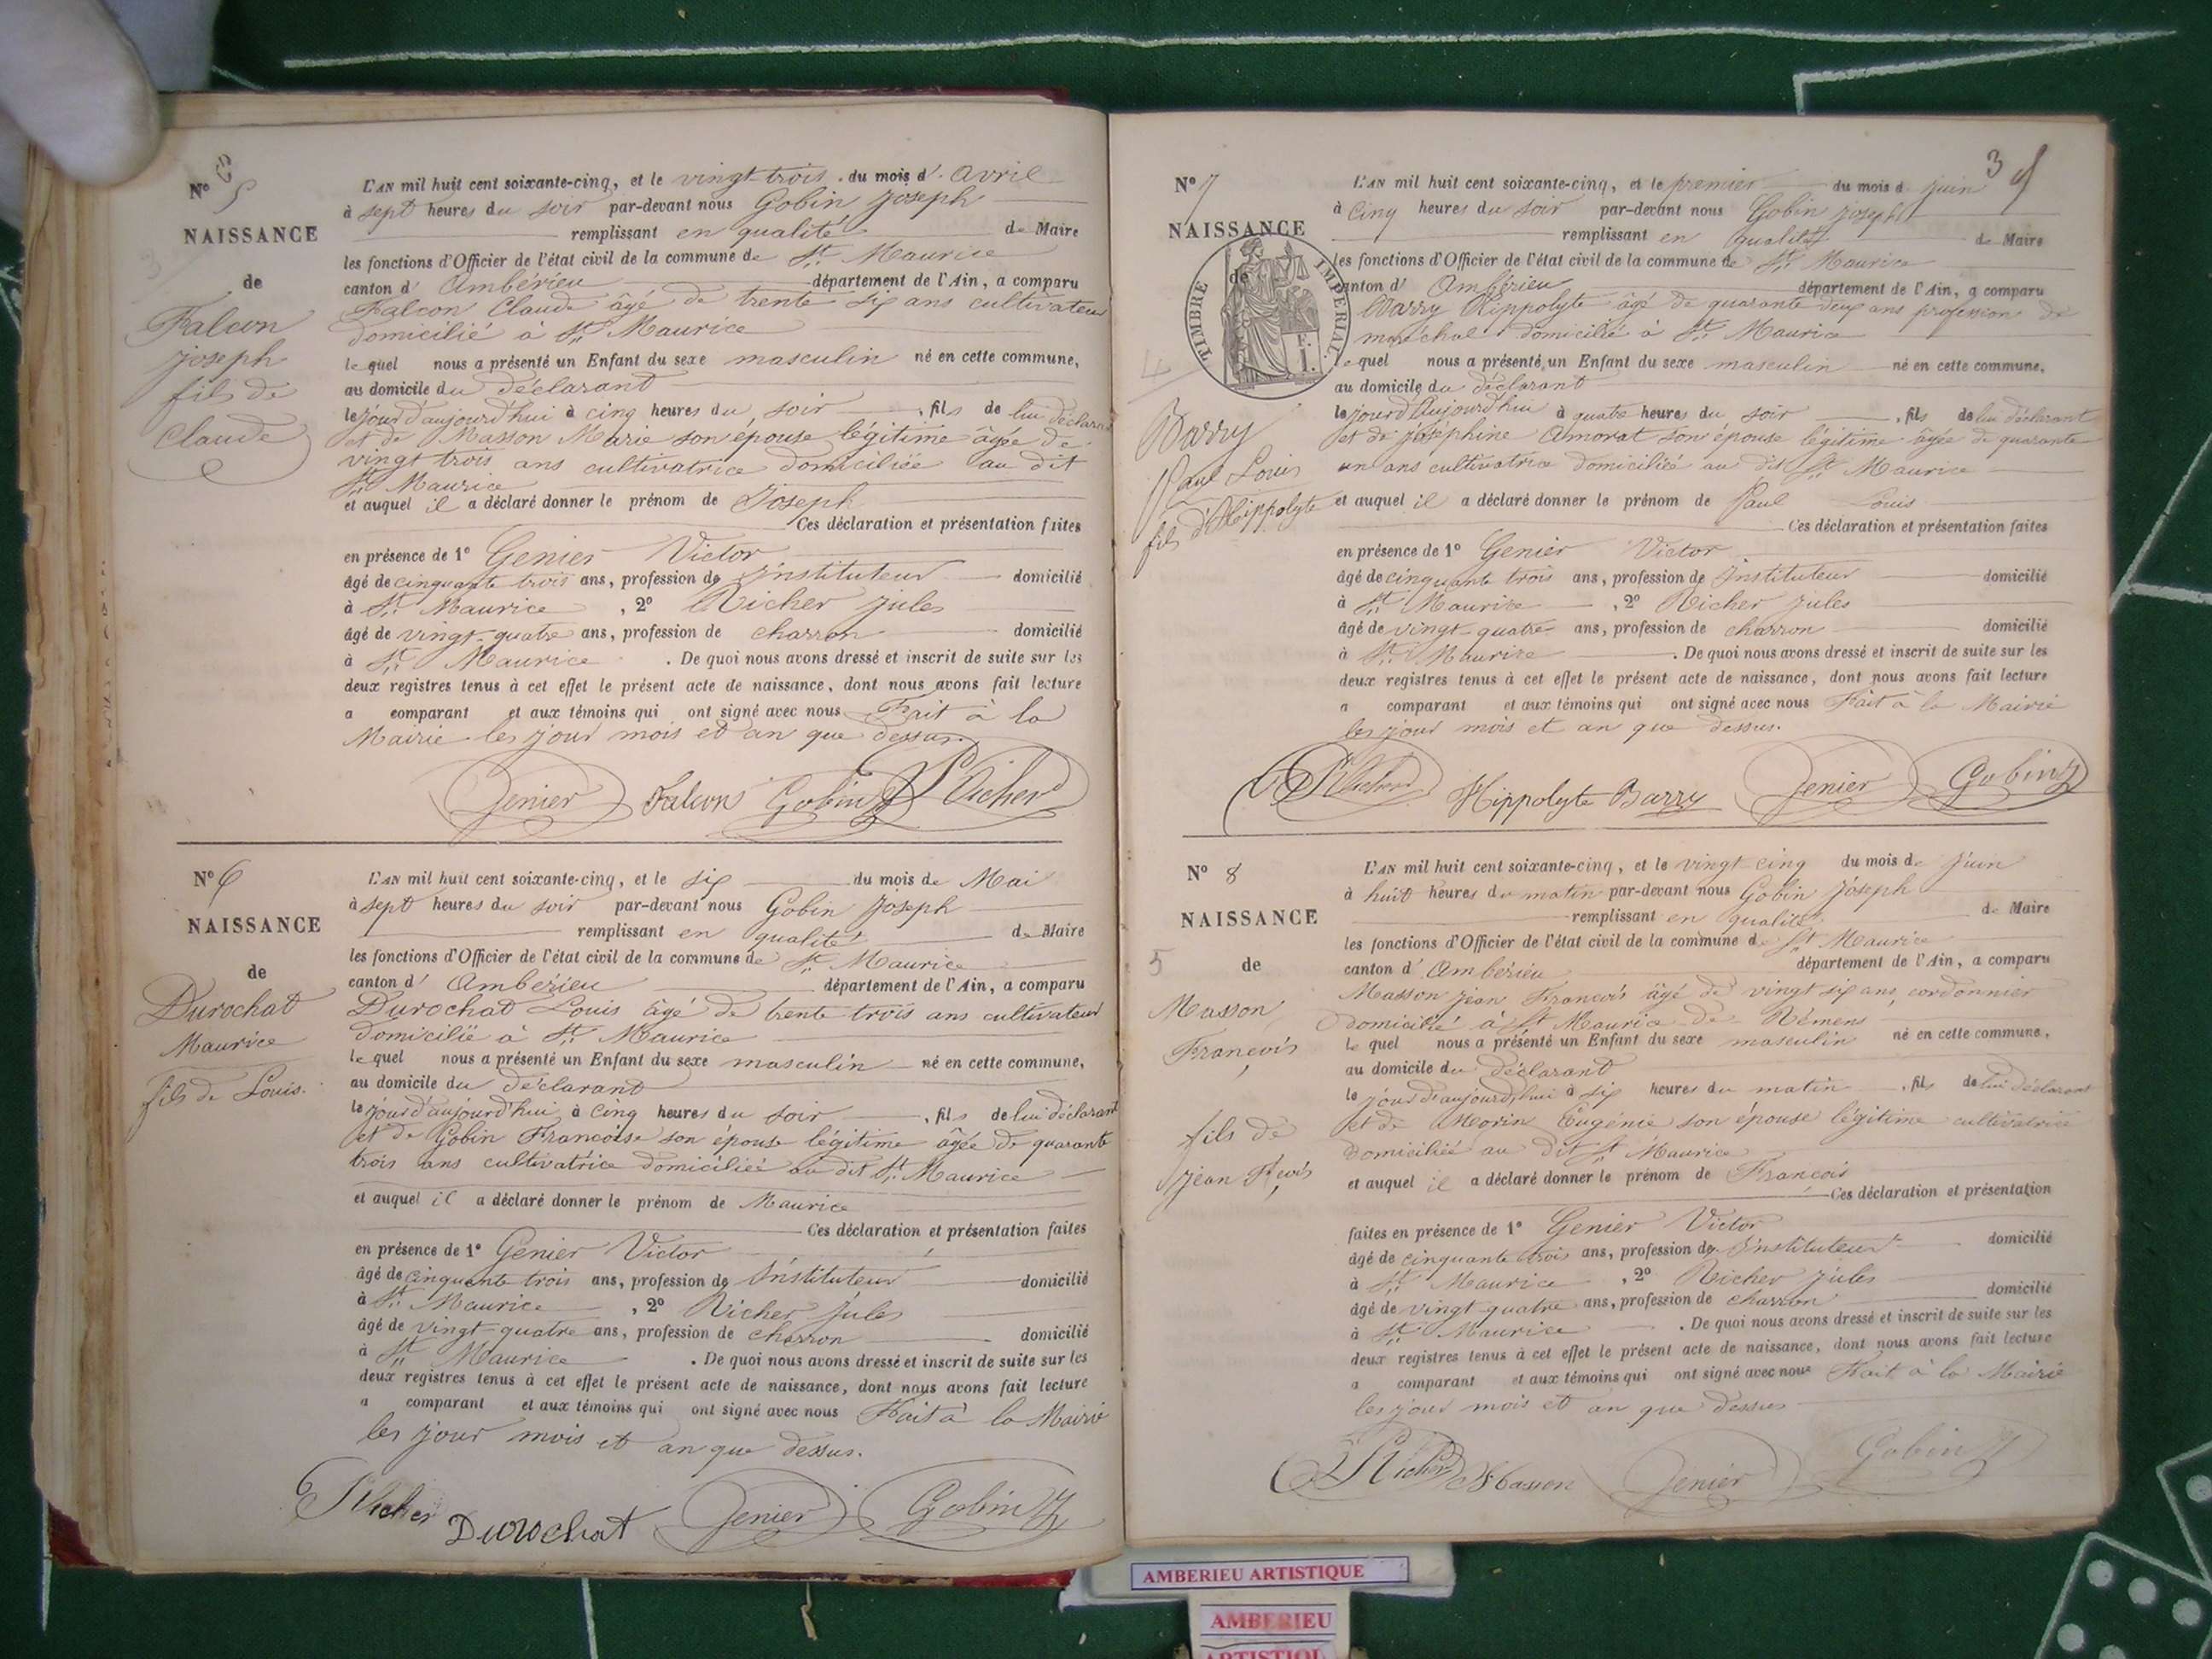 N° 5
NAISSANCE
de
Falcon
joseph
fils de
Claude
L'AN mil huit cent soixante-cinq, et le vingt-trois du mois d'avril
à sept heures du soir par-devant nous Gobin joseph
remplissant en qualité de Maire
les fonctions d'Officier de l'état civil de la commune de St Maurice
canton d'Ambérieu département de l'Ain, a comparu
Falcon Claude âgé de trente six ans cultivateur
domicilié à St Maurice
lequel nous a présenté un Enfant du sexe masculin né en cette commune,
au domicile du déclarant
le jour d'aujourd'hui à cinq heures du soir, fils de lui déclarant
et de Masson Marie son épouse légitime âgée de
vingt trois ans cultivatrice domiciliée au dit
St Maurice
et auquel il a déclaré donner le prénom de Joseph
Ces déclaration et présentation faites
en présence de 1° Genier Victor
âgé de cinquante trois ans, profession de Instituteur domicilié
à St Maurice, 2° Richer jules
âgé de vingt-quatre ans, profession de charron domicilié
à St Maurice. De quoi nous avons dressé et inscrit de suite sur les
deux registres tenus à cet effet le présent acte de naissance, dont nous avons fait lecture
a comparant et aux témoins qui ont signé avec nous Fait à la
Mairie les jour mois et an que dessus.
Genier Falcon Gobin J Richer
N° 6
NAISSANCE
de
Durochat
Maurice
fils de Louis.
L'AN mil huit cent soixante-cinq, et le six du mois de Mai
à sept heures du soir par-devant nous Gobin Joseph
remplissant en qualité de Maire
les fonctions d'Officier de l'état civil de la commune de St Maurice
canton d'Ambérieu département de l'Ain, a comparu
Durochat Louis âgé de trente trois ans cultivateur
domicilié à St Maurice
lequel nous a présenté un Enfant du sexe masculin né en cette commune,
au domicile du déclarant
le jour d'aujourd'hui à cinq heures du soir, fils de lui déclarant
et de Gobin Francoise son épouse légitime âgée de quarante
trois ans cultivatrice domiciliée au dit St Maurice
et auquel il a déclaré donner le prénom de Maurice
Ces déclaration et présentation faites
en présence de 1° Genier Victor
âgé de cinquante trois ans, profession de Instituteur domicilié
à St Maurice, 2° Richer jules
âgé de vingt-quatre ans, profession de charron domicilié
à St Maurice. De quoi nous avons dressé et inscrit de suite sur les
deux registres tenus à cet effet le présent acte de naissance, dont nous avons fait lecture
a comparant et aux témoins qui ont signé avec nous Fait à la Mairie
les jour mois et an que dessus.
J Richer Durochat Genier Gobin J
3
N° 7
NAISSANCE
de
TIMBRE IMPERIAL.
4
Barry
Paul Louis
fils d'Hippolyte
L'AN mil huit cent soixante-cinq, et le premier du mois d juin
à cinq heures du soir par-devant nous Gobin joseph
remplissant en qualité de Maire
les fonctions d'Officier de l'état civil de la commune de St Maurice
canton d'Ambérieu département de l'Ain, a comparu
Barry Hippolyte âgé de quarante deux ans profession de
maréchal domicilié à St Maurice
lequel nous a présenté un Enfant du sexe masculin né en cette commune,
au domicile du déclarant
le jour d'Aujourd'hui à quatre heures du soir, fils de lui déclarant
et de joséphine Amorat son épouse légitime âgée de quarante
un ans cultivatrice domiciliée au dit St Maurice
et auquel il a déclaré donner le prénom de Paul Louis
Ces déclaration et présentation faites
en présence de 1° Genier Victor
âgé de cinquante trois ans, profession de Instituteur domicilié
à St Maurice, 2° Richer jules
âgé de vingt-quatre ans, profession de charron domicilié
à St Maurice. De quoi nous avons dressé et inscrit de suite sur les
deux registres tenus à cet effet le présent acte de naissance, dont nous avons fait lecture
a comparant et aux témoins qui ont signé avec nous Fait à la Mairie
les jour mois et an que dessus.
J Richer Hippolyte Barry Genier Gobin J
N° 8
NAISSANCE
5
de
Masson
Francois
fils de
jean Fcois
L'AN mil huit cent soixante-cinq, et le vingt cinq du mois de juin
à huit heures du matin par-devant nous Gobin Joseph
remplissant en qualité de Maire
les fonctions d'Officier de l'état civil de la commune de St Maurice
canton d'Ambérieu département de l'Ain, a comparu
Masson jean Francois âgé de vingt six ans, cordonnier
domicilié à St Maurice de Rémens
lequel nous a présenté un Enfant du sexe masculin né en cette commune,
au domicile du déclarant
le jour d'aujourd'hui à six heures du matin, fils de lui déclarant
et de Morin Eugénie son épouse légitime cultivatrice
domiciliée au dit St Maurice
et auquel il a déclaré donner le prénom de Francois
Ces déclaration et présentation
faites en présence de 1° Genier Victor
âgé de cinquante trois ans, profession de Instituteur domicilié
à St Maurice, 2° Richer jules
âgé de vingt-quatre ans, profession de charron domicilié
à St Maurice. De quoi nous avons dressé et inscrit de suite sur les
deux registres tenus à cet effet le présent acte de naissance, dont nous avons fait lecture
a comparant et aux témoins qui ont signé avec nous Fait à la Mairie
les jour mois et an que dessus
J Richer Masson Genier Gobin J
AMBERIEU ARTISTIQUE
AMBERIEU
ARTISTIQ